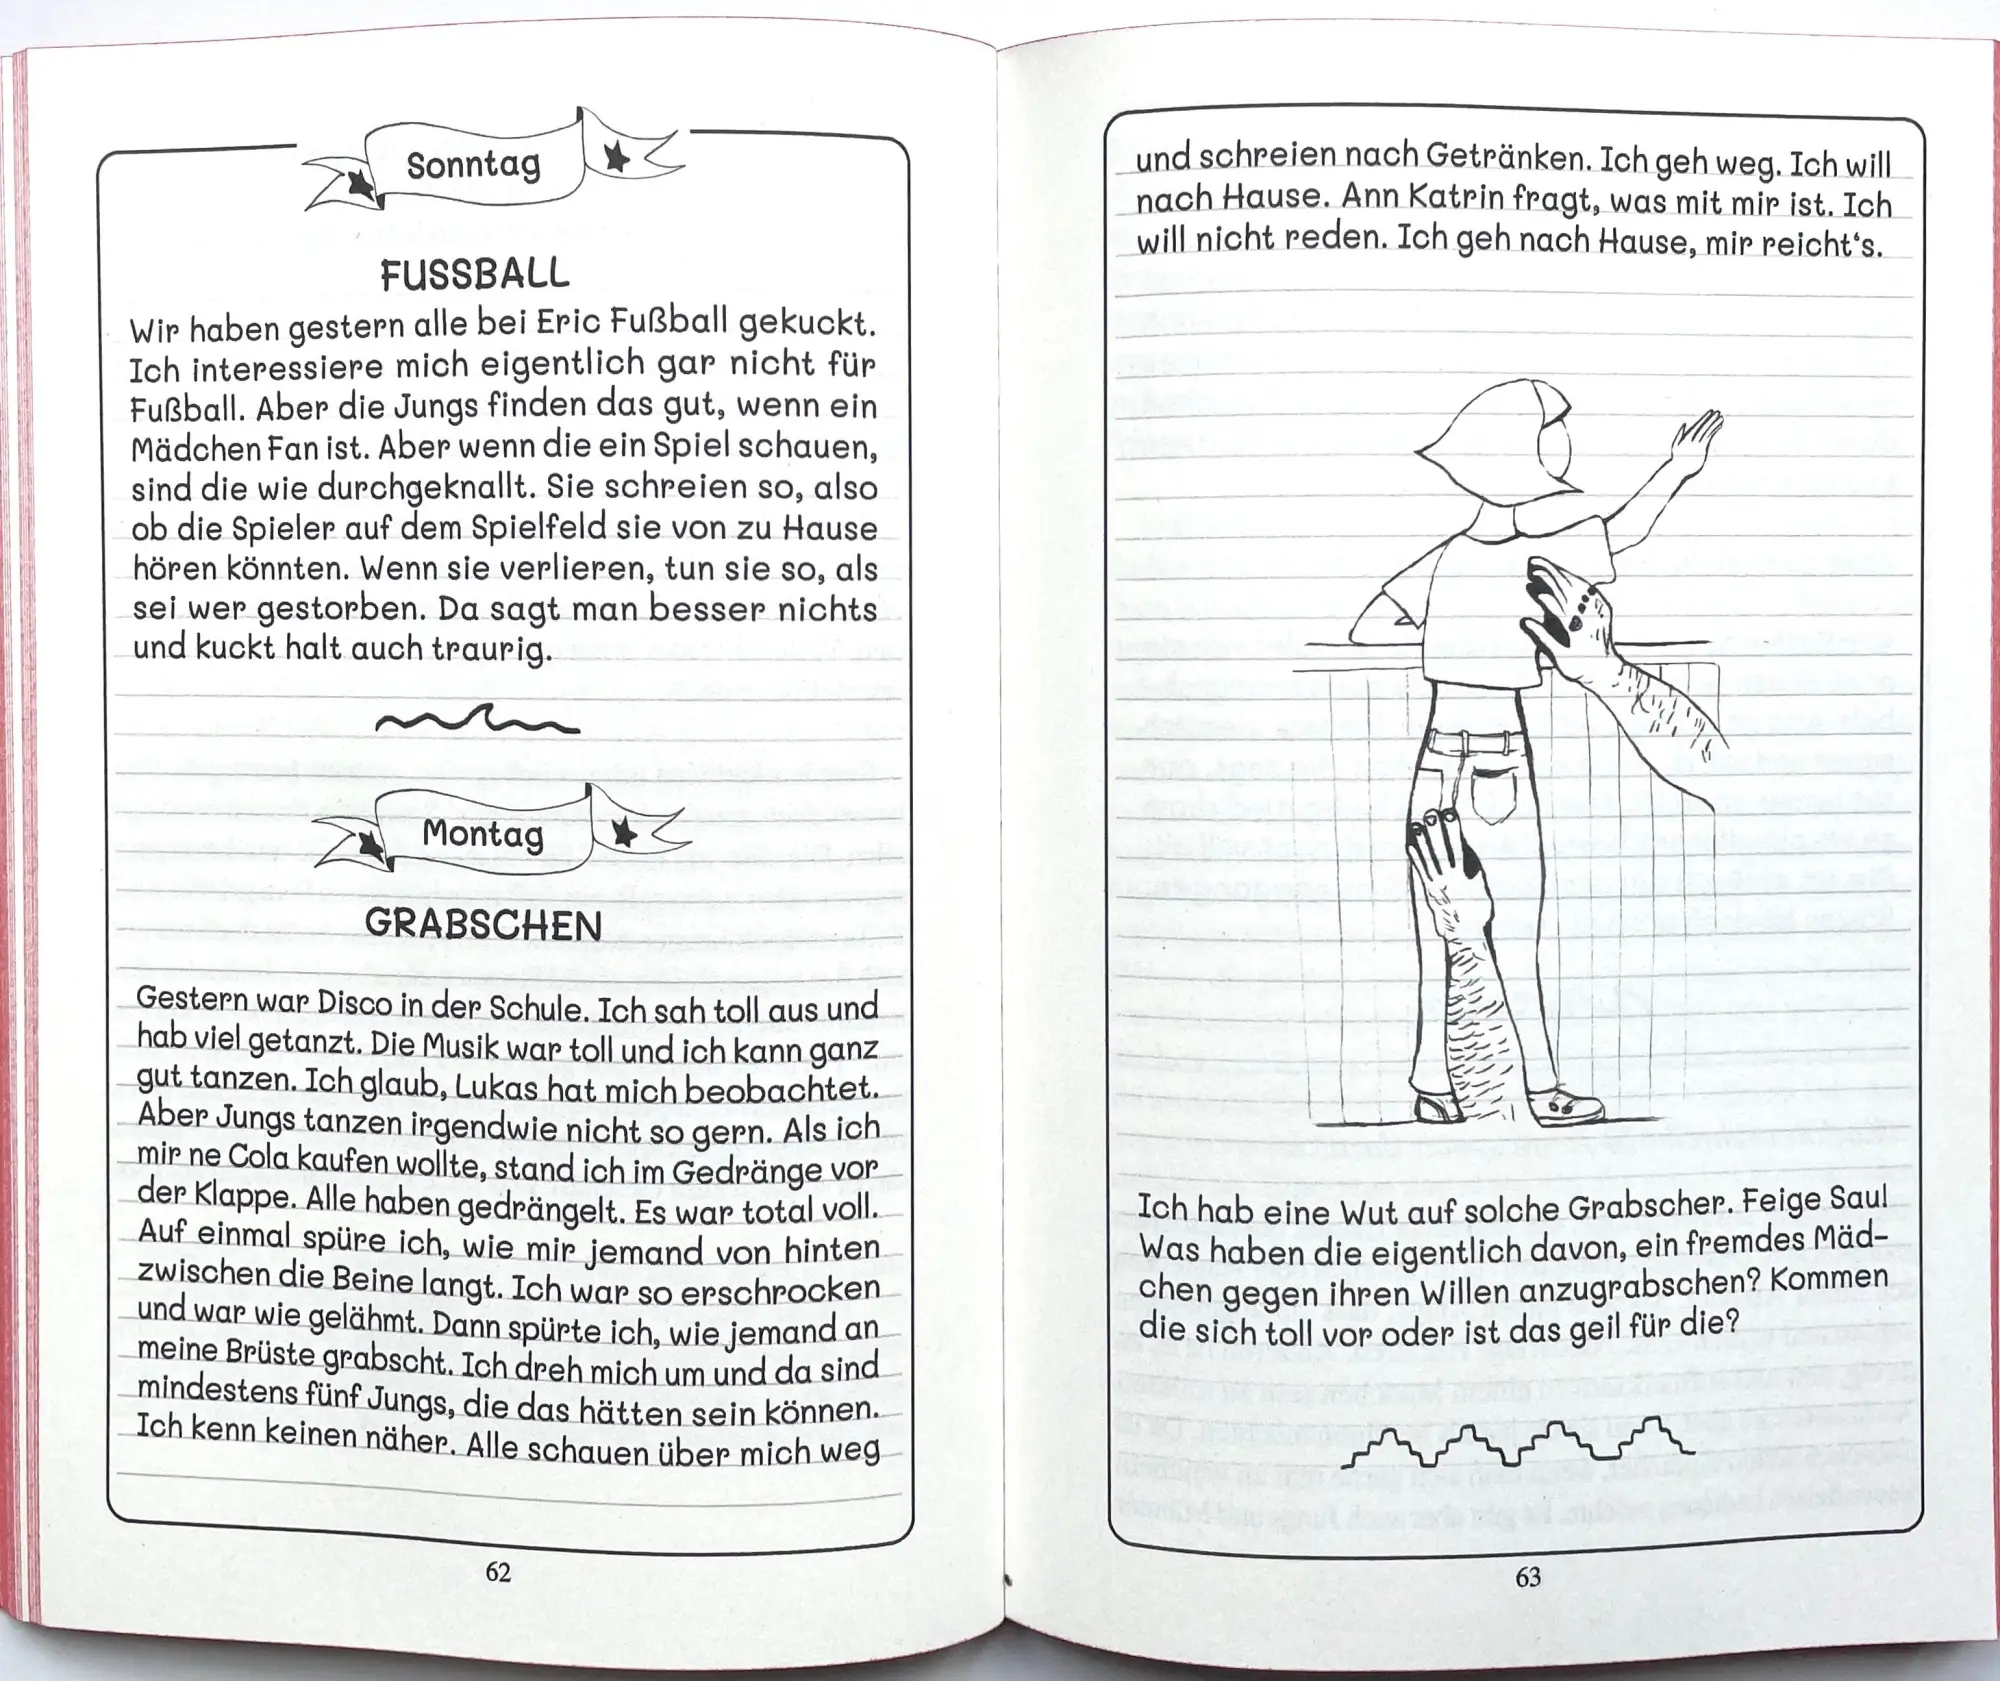 Sonntag
FUSSBALL
Wir haben gestern alle bei Eric Fußball gekuckt.
Ich interessiere mich eigentlich gar nicht für
Fußball. Aber die Jungs finden das gut, wenn ein
Mädchen Fan ist. Aber wenn die ein Spiel schauen,
sind die wie durchgeknallt. Sie schreien so, also
ob die Spieler auf dem Spielfeld sie von zu Hause
hören könnten. Wenn sie verlieren, tun sie so, als
sei wer gestorben. Da sagt man besser nichts
und kuckt halt auch traurig.
Montag
GRABSCHEN
Gestern war Disco in der Schule. Ich sah toll aus und
hab viel getanzt. Die Musik war toll und ich kann ganz
gut tanzen. Ich glaub, Lukas hat mich beobachtet.
Aber Jungs tanzen irgendwie nicht so gern. Als ich
mir ne Cola kaufen wollte, stand ich im Gedränge vor
der Klappe. Alle haben gedrängelt. Es war total voll.
Auf einmal spüre ich, wie mir jemand von hinten
zwischen die Beine langt. Ich war so erschrocken
und war wie gelähmt. Dann spürte ich, wie jemand an
meine Brüste grabscht. Ich dreh mich um und da sind
mindestens fünf Jungs, die das hätten sein können.
Ich kenn keinen näher. Alle schauen über mich weg
62
und schreien nach Getränken. Ich geh weg. Ich will
nach Hause. Ann Katrin fragt, was mit mir ist. Ich
will nicht reden. Ich geh nach Hause, mir reicht‘s.
Ich hab eine Wut auf solche Grabscher. Feige Sau!
Was haben die eigentlich davon, ein fremdes Mäd-
chen gegen ihren Willen anzugrabschen? Kommen
die sich toll vor oder ist das geil für die?
63